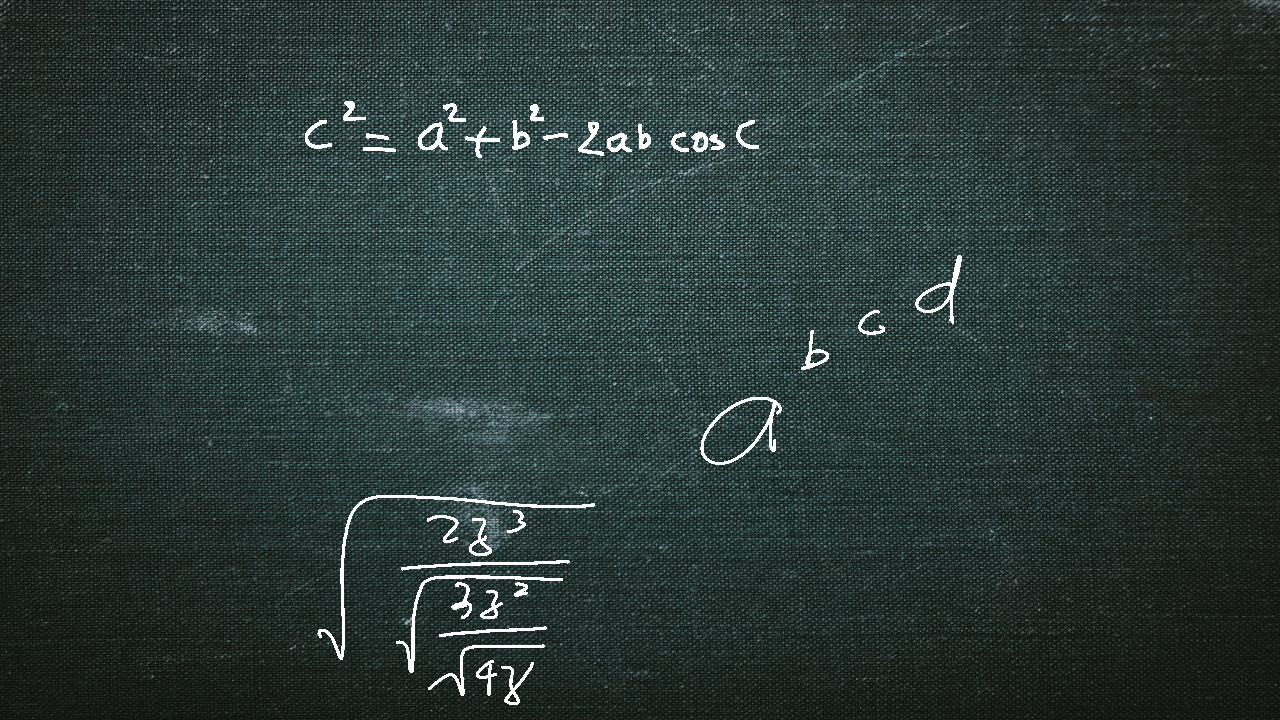 c² = a² + b² - 2ab cos C
a^{b^{c^{d}}}
\sqrt{\frac{2z^3}{\sqrt{\frac{3z^2}{\sqrt{4z}}}}}